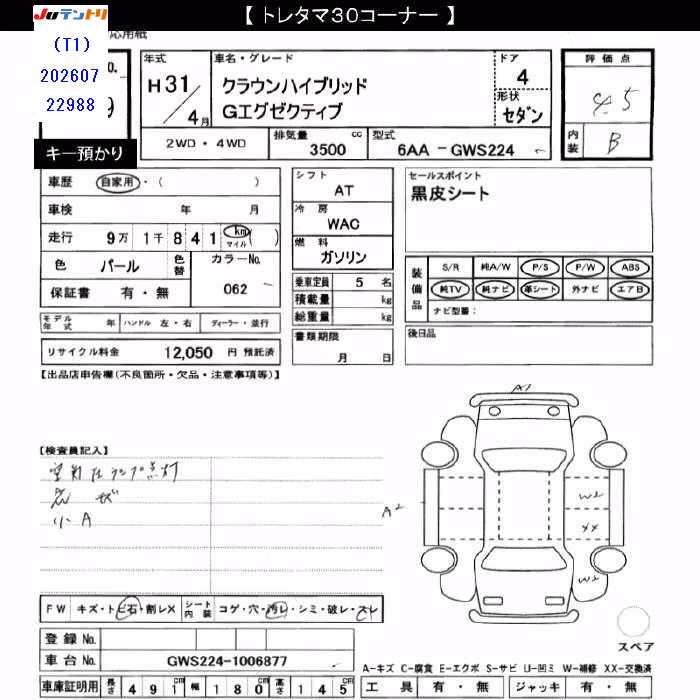 【 トレタマ30コーナー 】
JUテントリ
応用紙
(T1)
202607
22988
キー預かり
年式
H31/4月
車名・グレード
クラウンハイブリッド
Gエグゼクティブ
ドア
4
形状
セダン
評価点
4.5
内装
B
2WD ・ 4WD
排気量
3500 cc
型式
6AA －GWS224
車歴 自家用・( )
車検 年 月
走行 9万 1千 8 4 1 km マイル ( )
色 パール 色替 カラーNo.
保証書 有・無 062
モデル年式 年 ハンドル 左・右 ディーラー・並行
リサイクル料金 12,050 円 預託済
シフト
AT
冷房
WAC
燃料
ガソリン
乗車定員 5 名
積載量 kg
総重量 kg
書類期限
月 日
セールスポイント
黒皮シート
装備品
S/R 純A/W P/S P/W ABS
純TV 純ナビ 革シート 外ナビ エアB
ナビ型番：
後日品
【出品店申告欄(不良箇所・欠品・注意事項等)】
【検査員記入】
空気圧ランプ点灯
小A
A1
A2
W2
XX
W2
FW キズ・トビ石・割レX シート内装 コゲ・穴・汚レ・シミ・破レ・スレ
登録 No.
車台 No. GWS224-1006877
車庫証明用 長さ 491cm 幅 180cm 高さ 145cm
スペア
A-キズ C-腐食 E-エクボ S-サビ U-凹ミ W-補修 XX-交換済
工具 有・無 ジャッキ 有・無